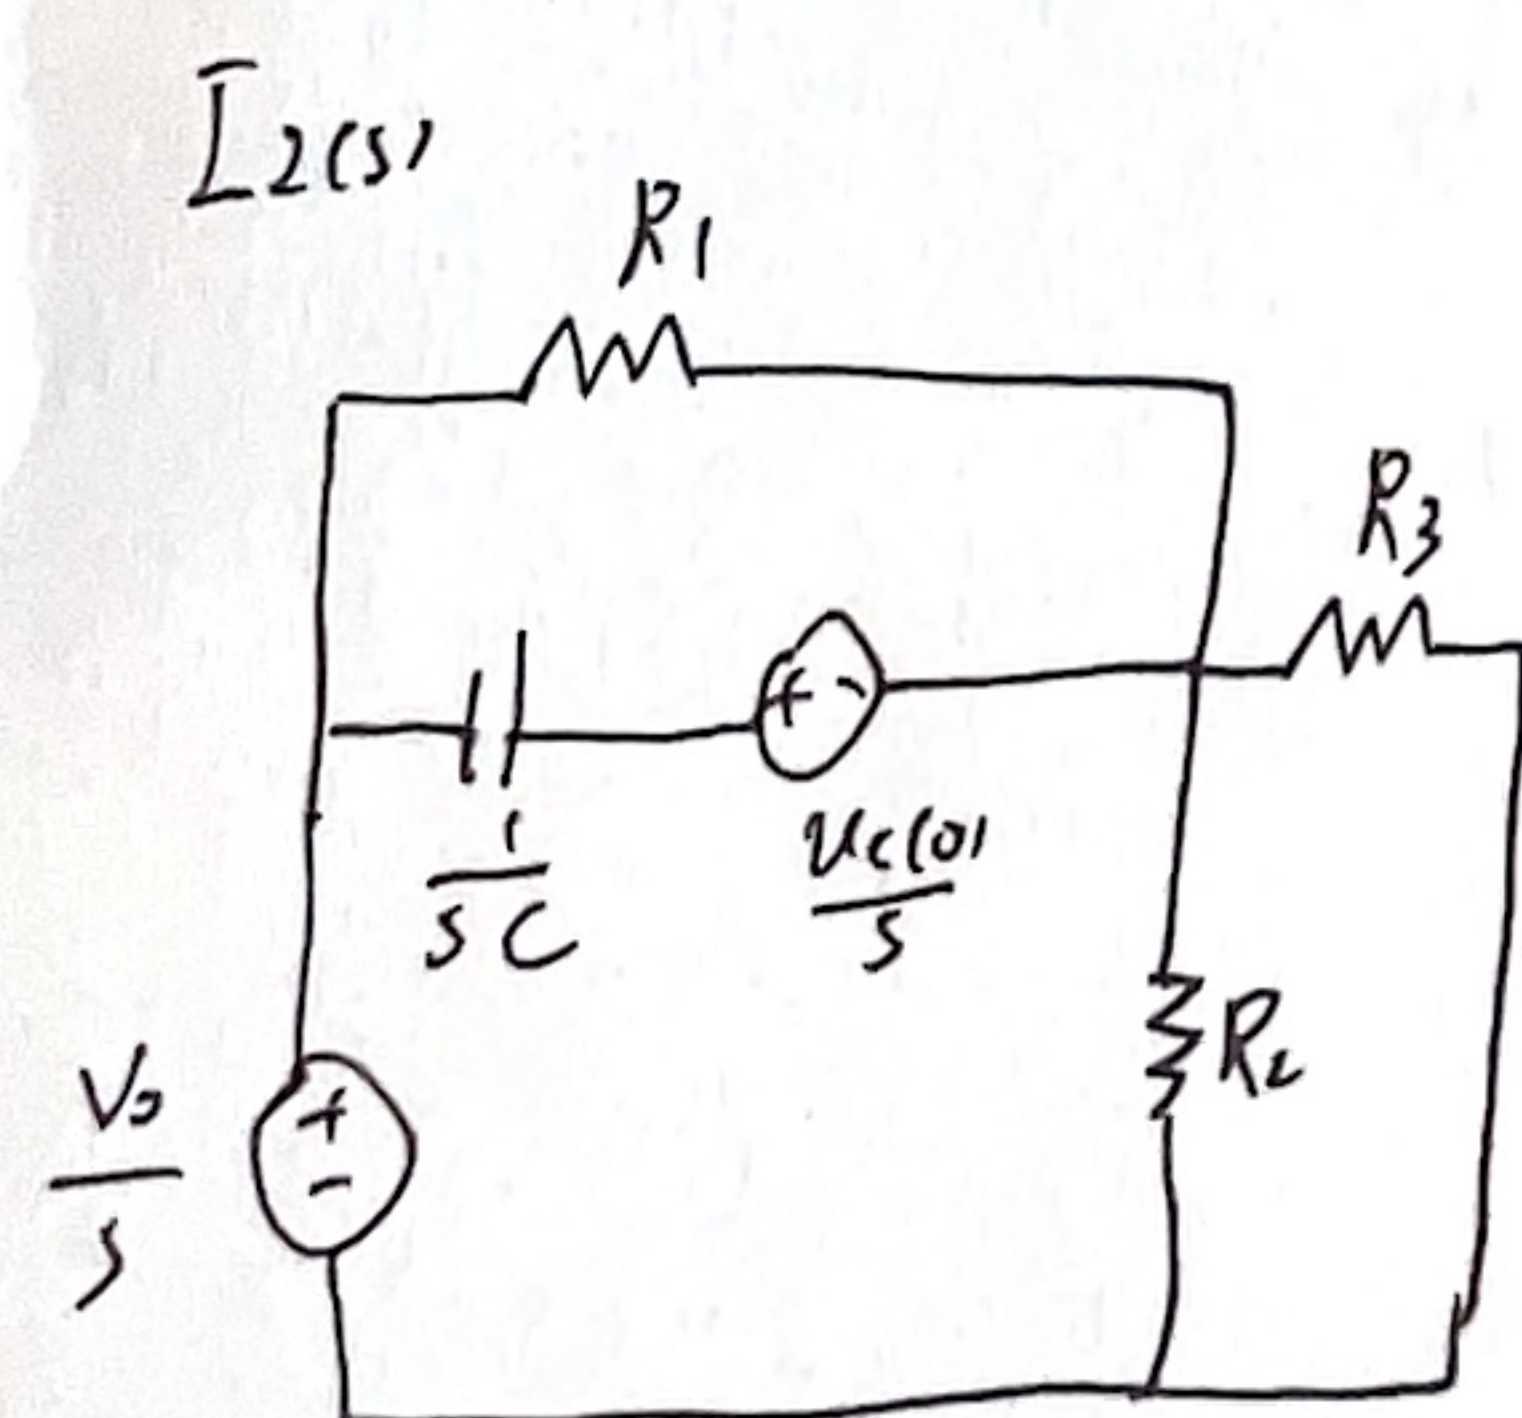 I2(s)
R1
R3
+ -
1/sC
uc(0)/s
R2
V0/s
+
-